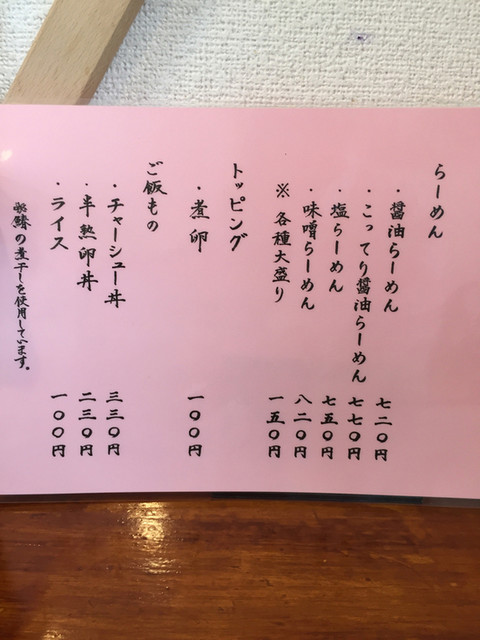 らーめん
・醤油らーめん 七二〇円
・こってり醤油らーめん 七七〇円
・塩らーめん 七五〇円
・味噌らーめん 八二〇円
※ 各種大盛り 一五〇円
トッピング
・煮卵 一〇〇円
ご飯もの
・チャーシュー丼 三三〇円
・半熟卵丼 二三〇円
・ライス 一〇〇円
の煮干しを使用しています。